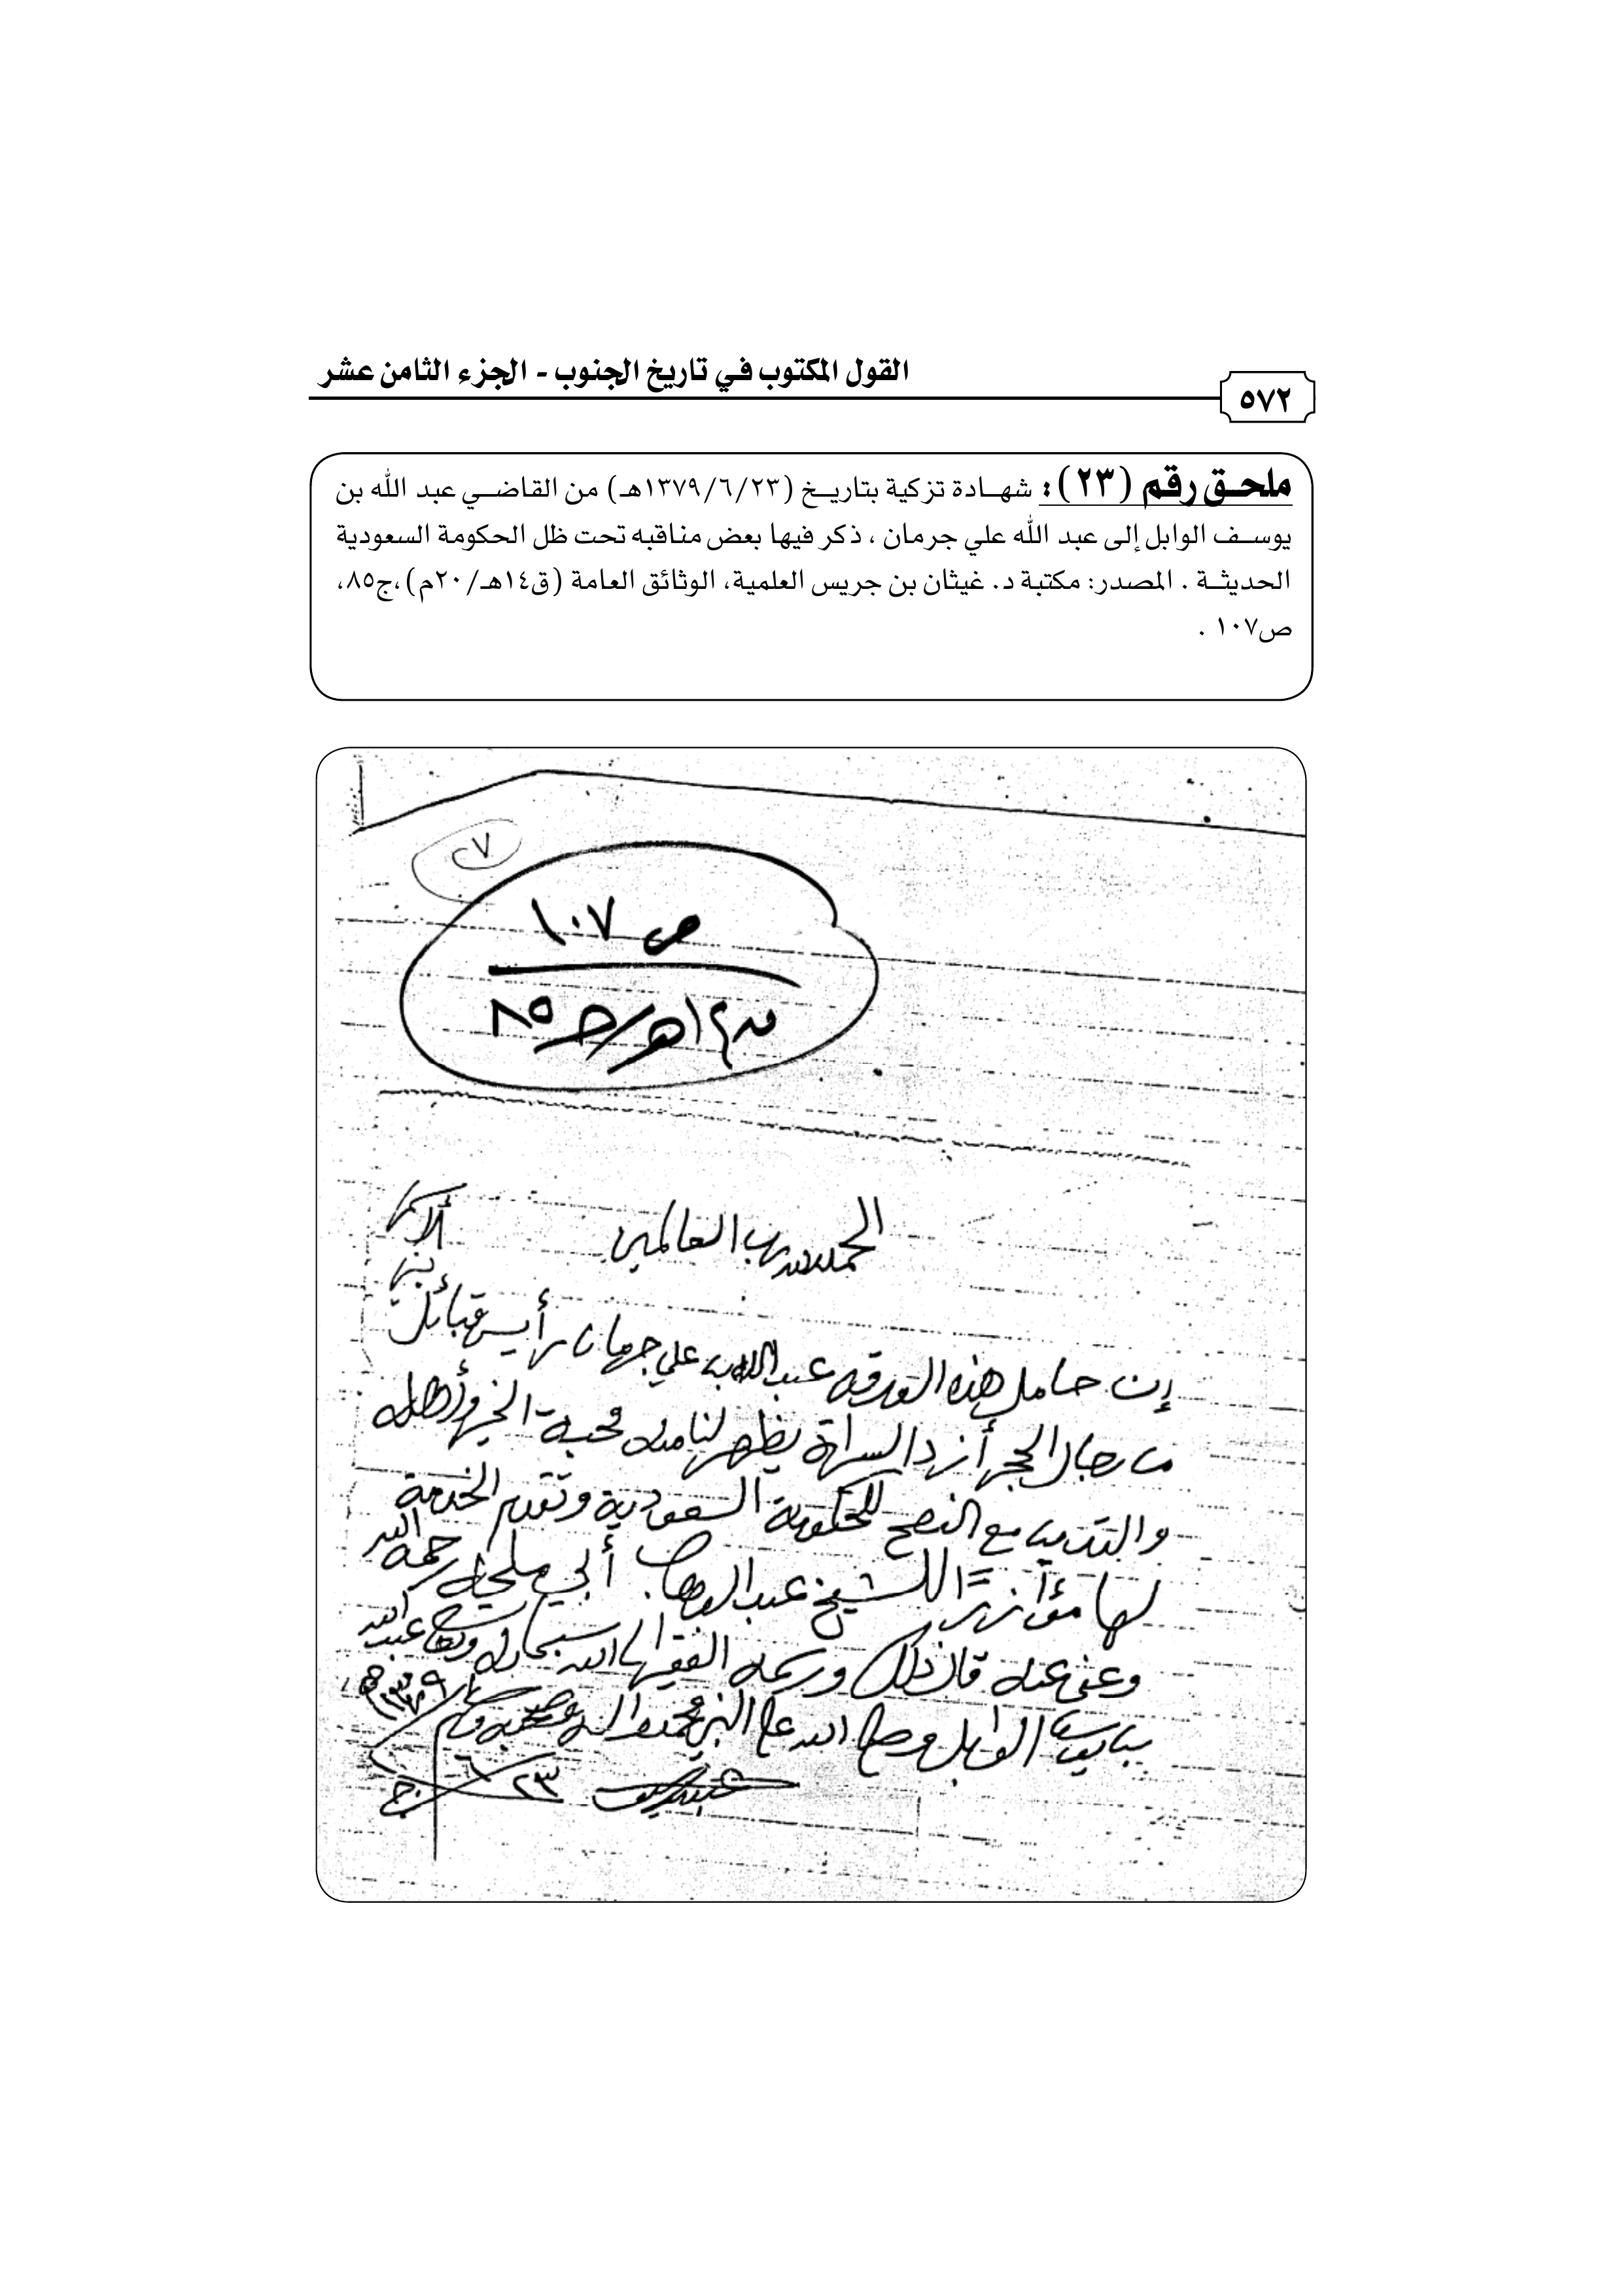 القول المكتوب في تاريخ الجنوب - الجزء الثامن عشر
٥٧٢
ملحق رقم (٢٣): شهادة تزكية بتاريخ (١٣٧٩/٦/٢٣هـ) من القاضي عبد الله بن
يوسف الوابل إلى عبد الله علي جرمان ، ذكر فيها بعض مناقبه تحت ظل الحكومة السعودية
الحديثة . المصدر: مكتبة د. غيثان بن جريس العلمية، الوثائق العامة (ق١٤هـ/٢٠م)،ج٨٥،
ص١٠٧ .
٧
ص ١٠٧
ق١٤هـ/جـ٨٥
الحمد لله رب العالمين
إن حامل هذه الورقه عبد الله بن علي جرمان رأيس قبائل بني الأسمر
من رجال الحجر أزد السراة يظهر لنا منه محبة الخير وأهله
والتدين مع النصح للحكومة السعودية وتقديم الخدمة
لها مؤازرًا للشيخ عبد الوهاب أبي ملحه رحمه الله
وعفى عنه قال ذلك ورسمه الفقير إلى الله سبحانه عبد الله
بن يوسف الوابل وصلى الله على النبي محمد وآله وصحبه وسلم
٢٣ / ٦ / ١٣٧٩هـ